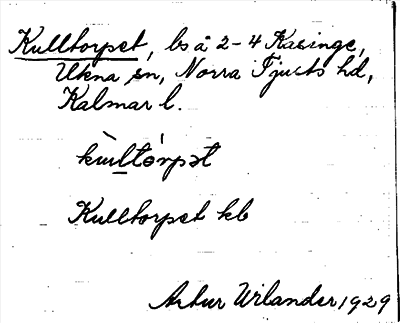 Kulltorpet, bs å 2-4 Kasinge,
Ukna sn, Norra Tjusts hd,
Kalmar l.
kùlltórpət
Kulltorpet kb
Artur Wilander 1929